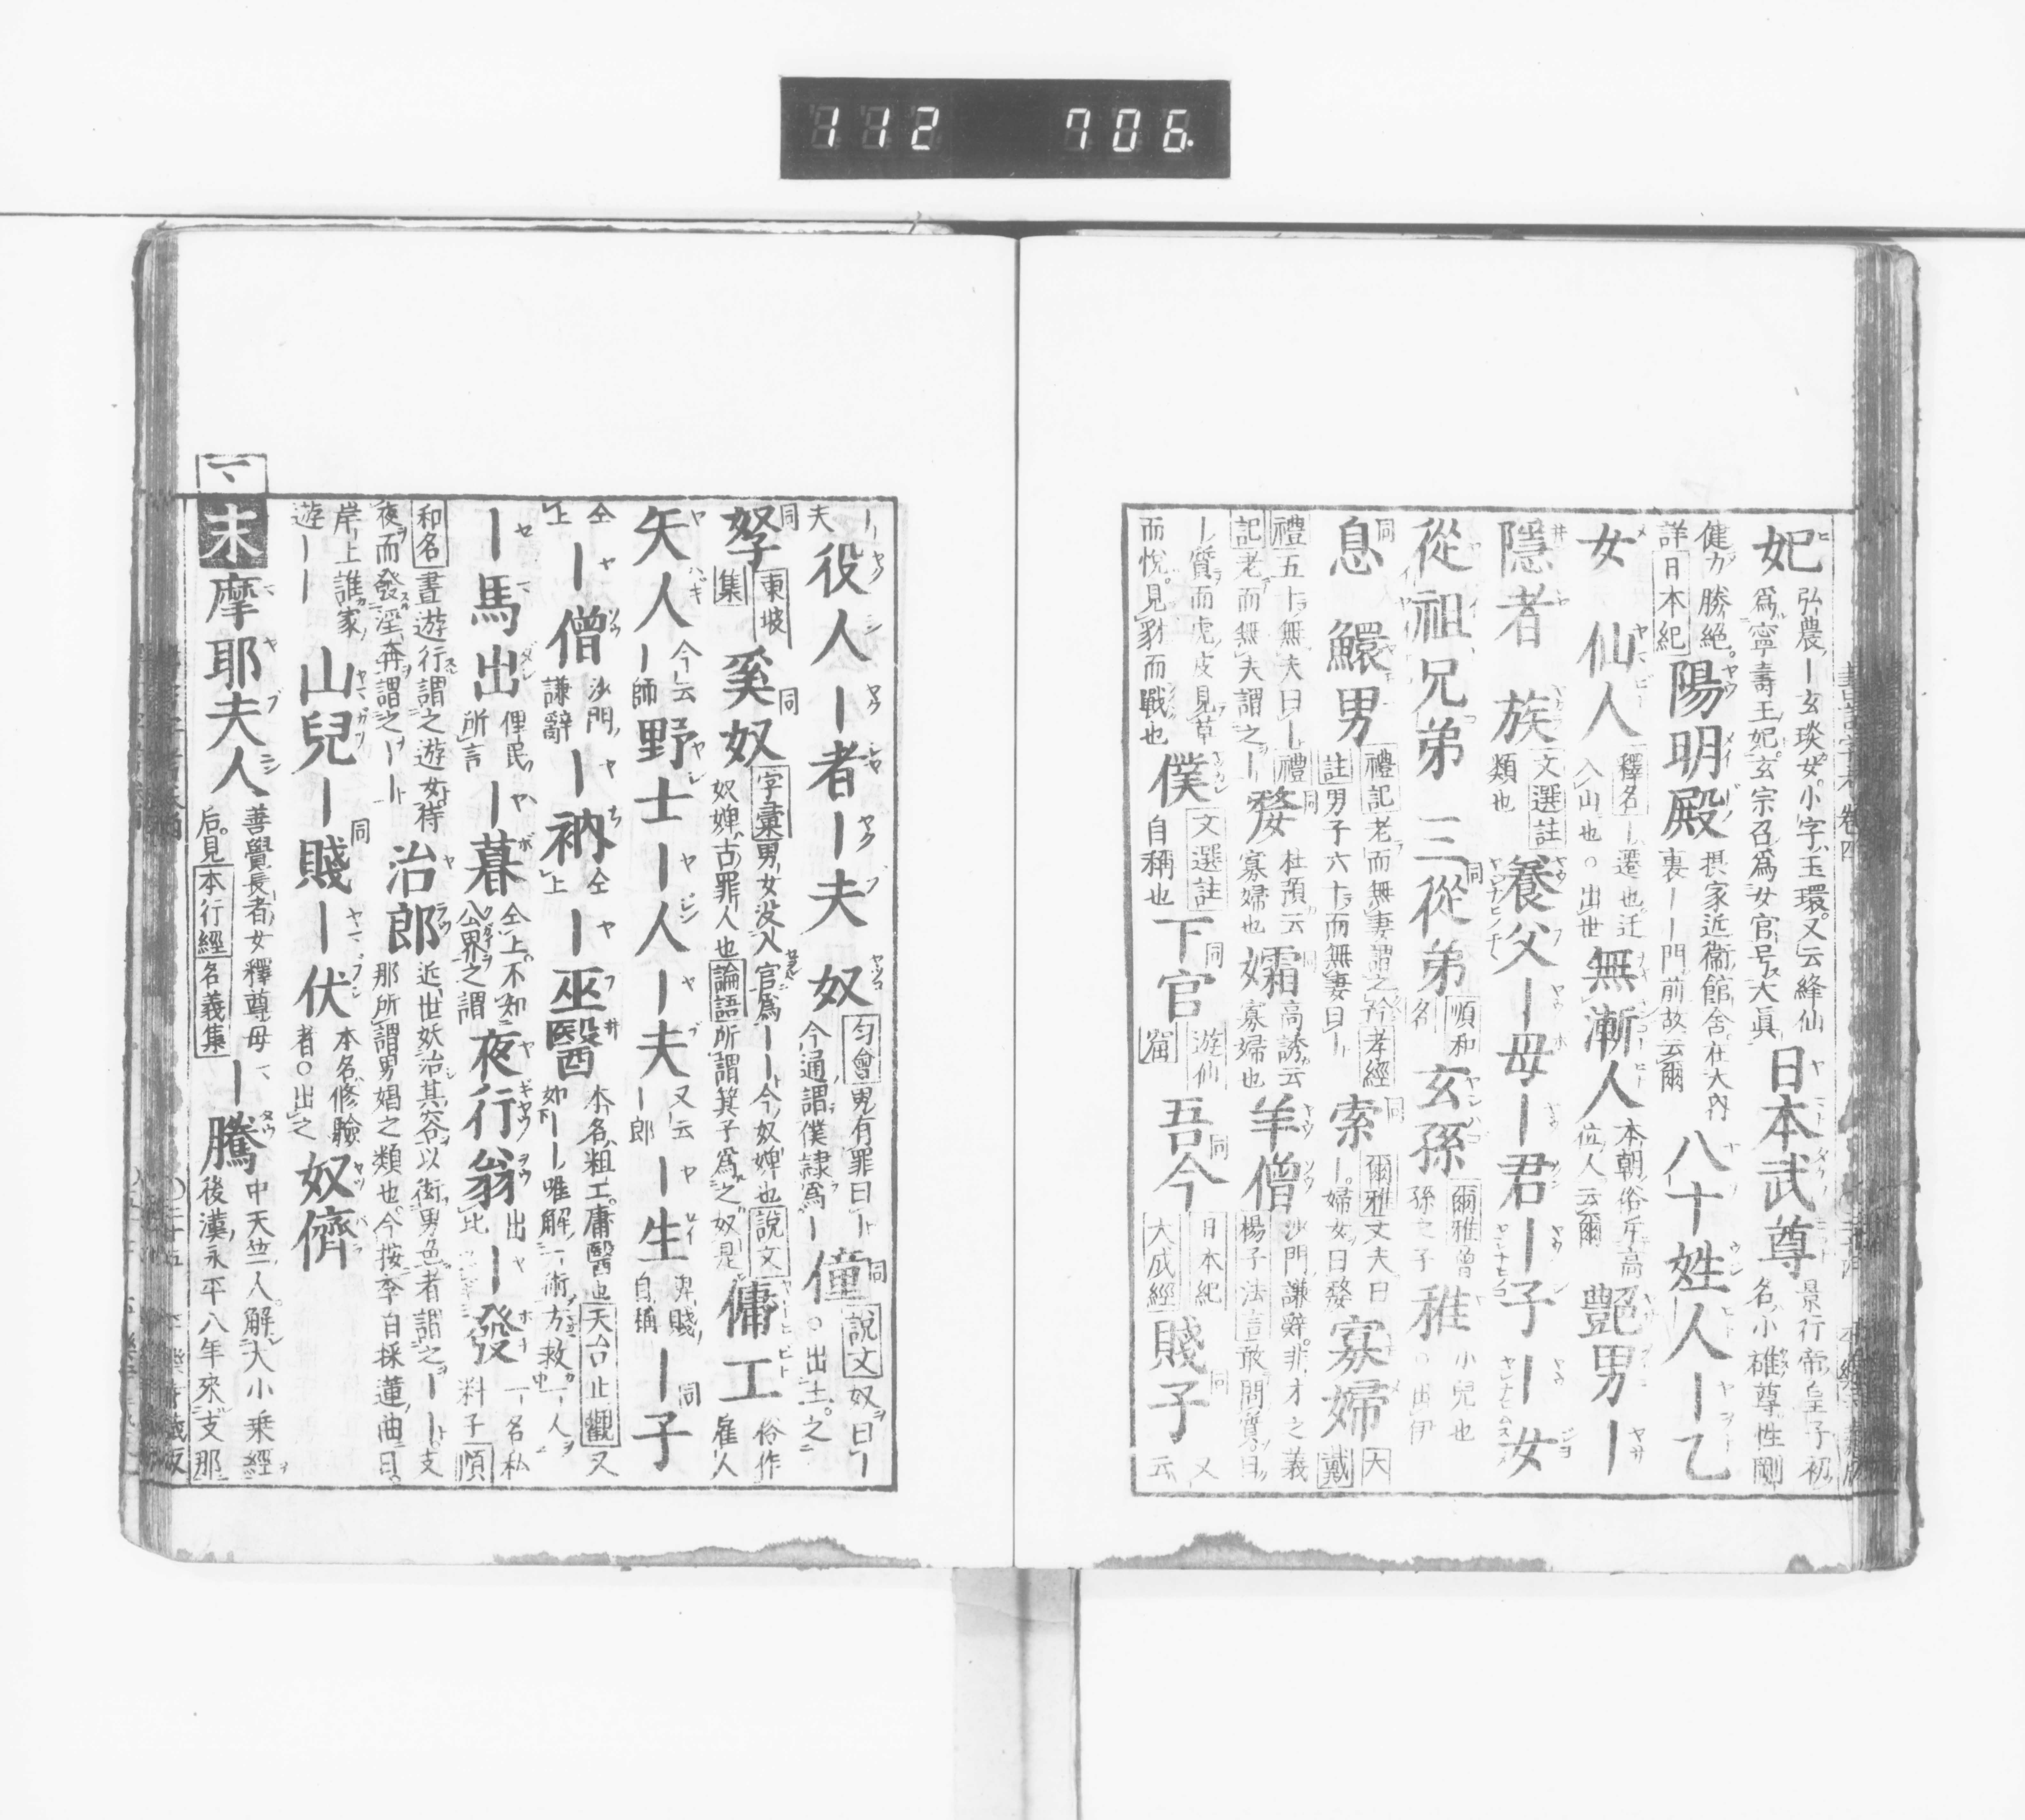 112 706
妃 弘農ー玄琰女。小字玉環。又云絳仙
爲寧壽王妃。玄宗召爲女官号大眞 日本武尊 景行帝皇子初
名小碓尊性剛
健力勝絕。
詳日本紀 陽明殿 摂家近衞館舍。在大內
裏ーー門前故云爾 八十姓人ー乙
女 仙人 釋名ー遷也。迁
入山也○出世 無漸人 本朝俗斥高
位人云爾 艶男ー
隱者 族 文選註
類也 養父ー母ー君ー子ー女
從祖兄弟 三從弟 順和
名 玄孫 爾雅曾
孫之子 稚 小兒也
○出伊
息 鰥男 禮記老而無妻謂之矜孝經
註男子六十而無妻曰ー 索 爾雅丈夫曰
ー。婦女曰嫠 寡婦 大
戴
禮五十無夫曰ー禮
記老而無夫謂之ー 嫠 杜預云
寡婦也 孀 高誘云
寡婦也 羊僧 沙門謙辭。非才之義
楊子法言敢問質曰
ー質而虎皮見草
而悅。見豺而戰也 僕 文選註
自稱也 下官 遊仙
窟 吾今 日本紀
大成經 賤子 又
云
ー
夫 役人ー者ー夫 奴 匀會男有罪曰ー
今通謂僕隷爲ー 僮 說文奴曰ー
○出土之
孥 東坡
集 奚奴 字彙男女没入官爲ーー今奴婢也說文
奴婢古罪人也論語所謂箕子爲之奴是 傭工 俗作
雇人
矢人 今云
ー師 野士ー人ー夫 又云
ー郎 ー生 卑賤
自稱 ー子
仝
上 ー僧 沙門
謙辭 ー衲 仝
上 ー巫醫 本名粗工。庸醫也天台止觀又
如下ーー唯解一術方救一人
ー馬出 俚民
所言 ー暮 仝上不知
公界之謂 夜行翁 出
比 ー發 一名私
料子順
和名晝遊行謂之遊女待
夜而發淫奔謂之ーー 治郎 近世妖治其容以衒男色者謂之ーー。支
那所謂男娼之類也。今按李白採蓮曲曰。
岸上誰家
遊ーー 山兒ー賤ー伏 本名修驗
者○出之 奴儕
マ 末 摩耶夫人 善覺長者女釋尊母
后。見本行經名義集 ー騰 中天竺人。解大小乘經
後漢永平八年來支那